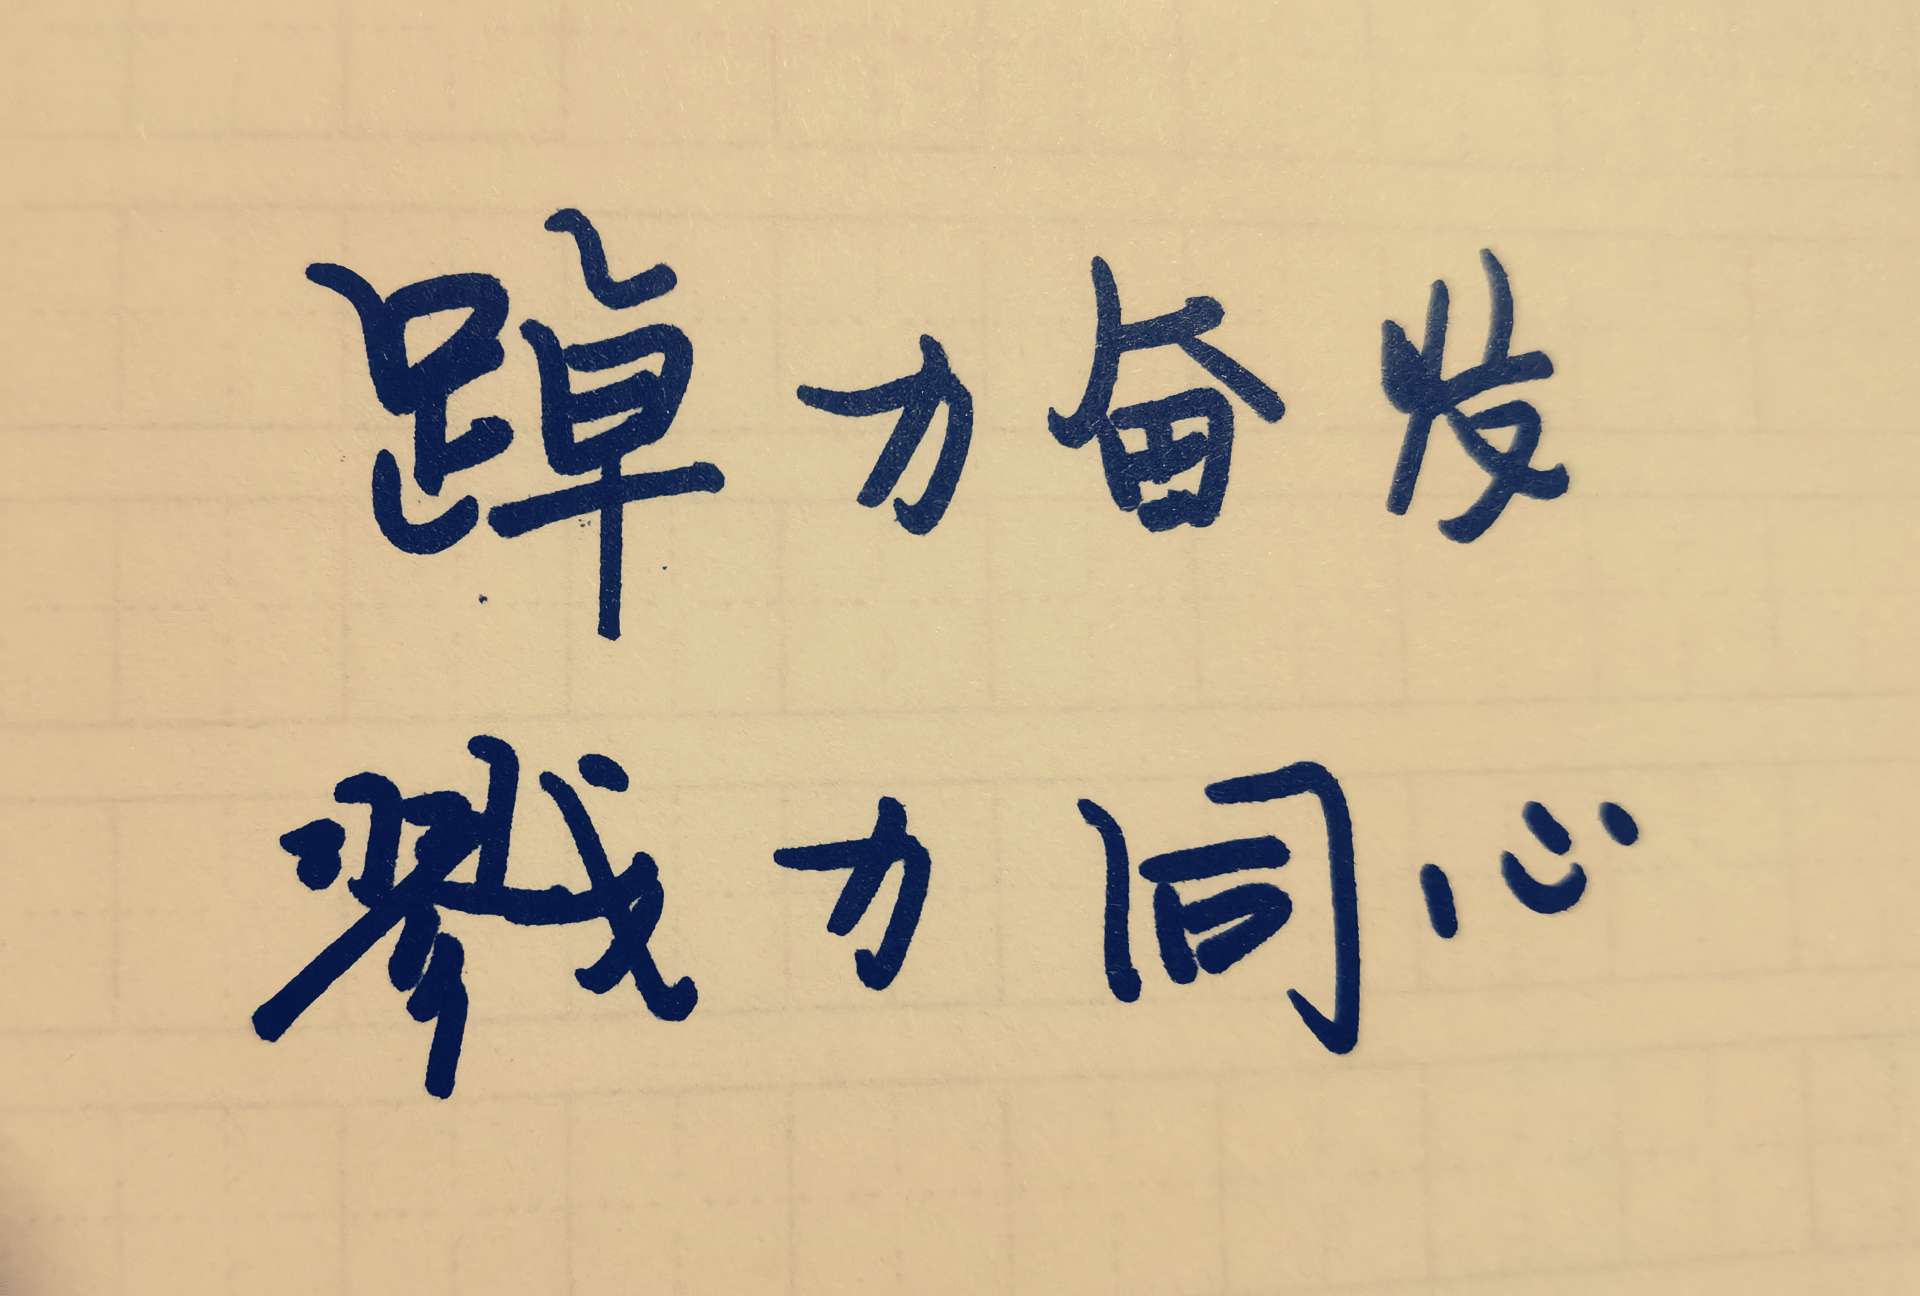 踔力奋发
戮力同心